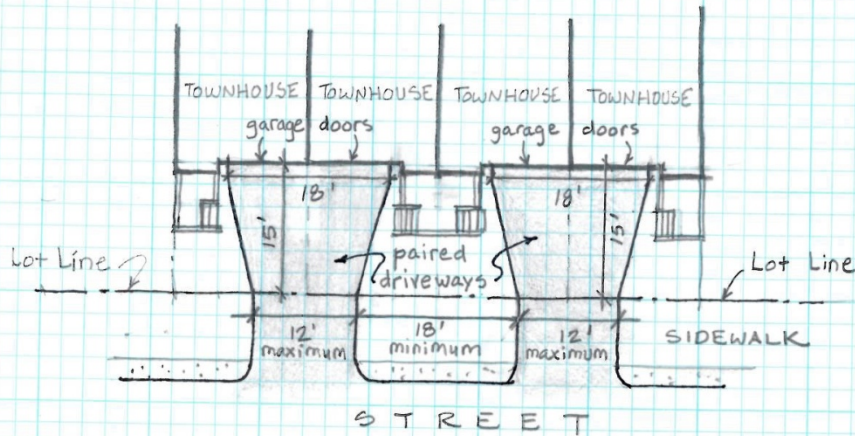 TOWNHOUSE TOWNHOUSE TOWNHOUSE TOWNHOUSE
garage doors garage doors
18' 18'
15' 15'
Lot Line paired driveways Lot Line
12' maximum 18' minimum 12' maximum
SIDEWALK
STREET